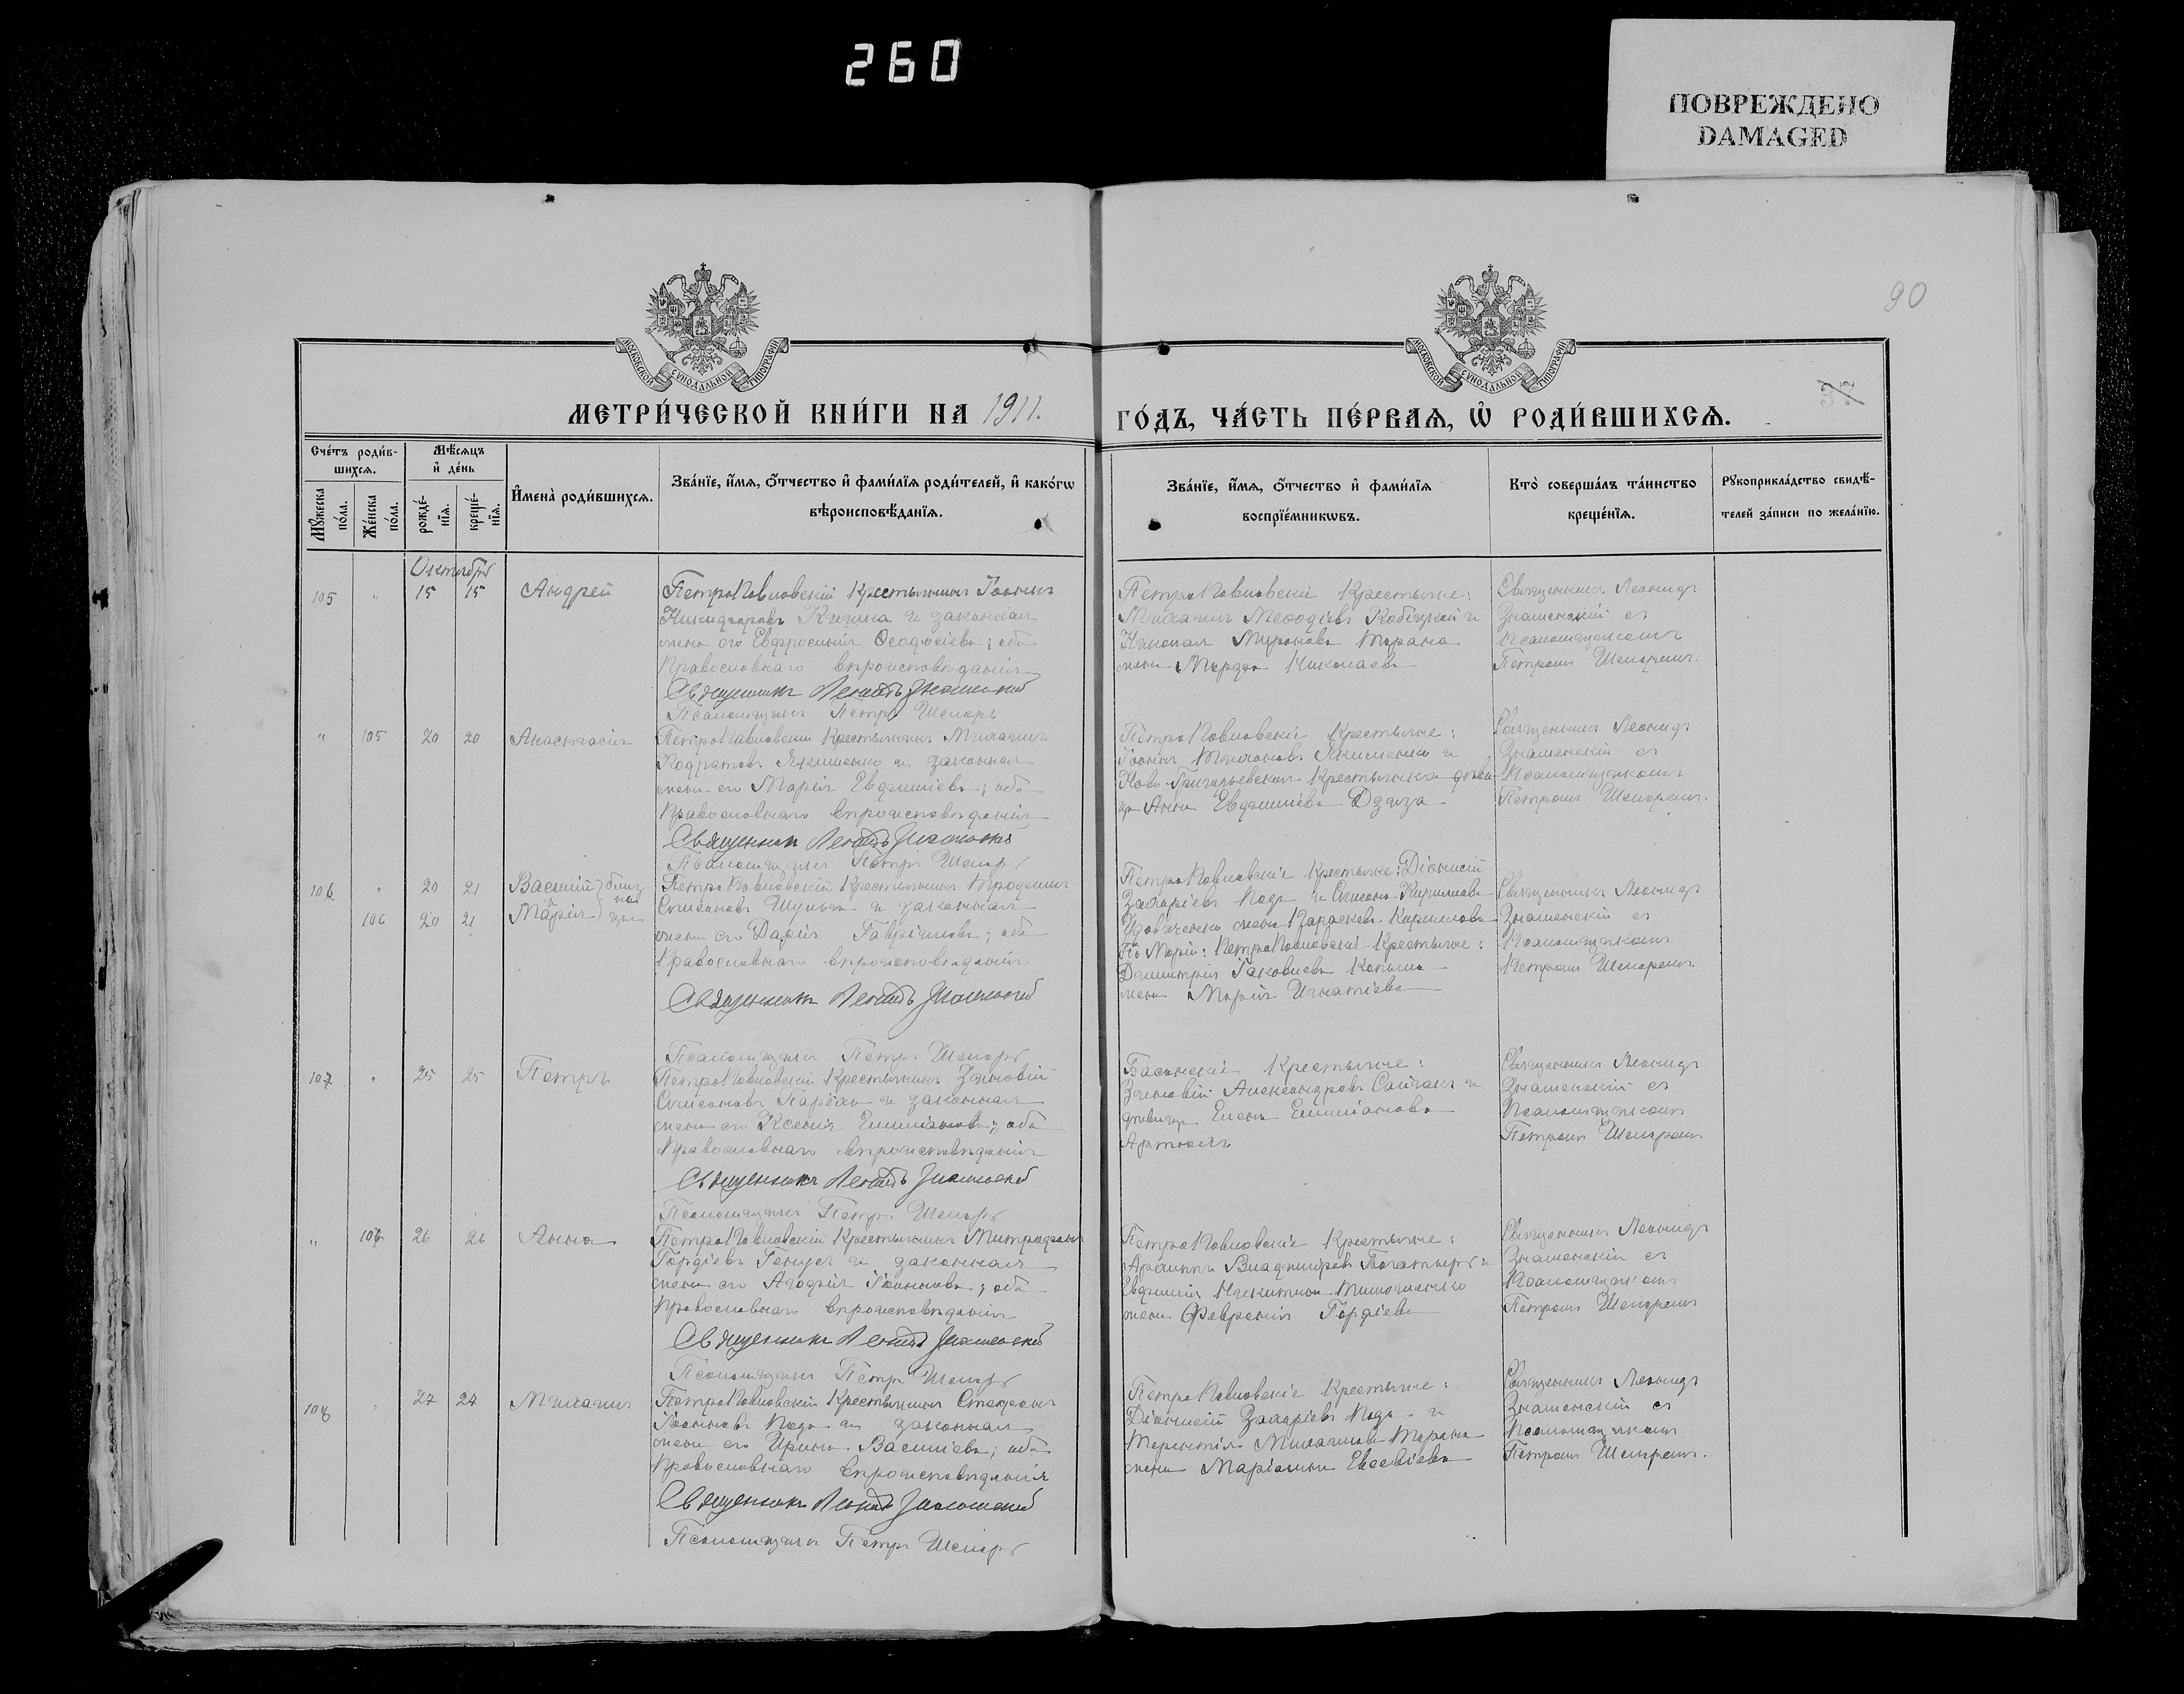 260
ПОВРЕЖДЕНО
DAMAGED
90
МОСКОВСКОЙ СѴНОДАЛЬНОЙ ТИПОГРАФІИ
МОСКОВСКОЙ СѴНОДАЛЬНОЙ ТИПОГРАФІИ
МЕТРИ́ЧЕСКОЙ КНИ́ГИ НА 1911.
ГО́ДЪ, ЧА́СТЬ ПЕ́РВАѦ, Ѡ҆ РОДИ́ВШИХСѦ.
Сче́тъ роди́в-
шихсѧ.
Мѣ́сѧцъ
и҆ де́нь
Мꙋ́жеска
по́ла.
Же́нска
по́ла.
рожде́-
нїѧ.
креще́-
нїѧ.
И҆мена̀ роди́вшихсѧ.
Зва́нїе, и҆́мѧ, ѻ҆́тчество и҆ фами́лїѧ роди́телей, и҆ како́гѡ
вѣроисповѣ́данїѧ.
Зва́нїе, и҆́мѧ, ѻ҆́тчество и҆ фами́лїѧ
воспрїе́мникѡвъ.
Кто̀ соверша́лъ та́инство
креще́нїѧ.
Рꙋкоприкла́дство свидѣ́-
телей за́писи по жела́нїю.
Октябрь
105 " 15 15 Андрей
ПетроПавловскій Крестьянинъ Іоаннъ
Никифоровъ и законная
жена его Евфросинія Ѳеодосіева; оба
Православнаго вѣроисповѣданія
Священникъ Леонидъ Знаменскій
Псаломщикъ Петръ
ПетроПавловскіе Крестьяне:
Михаилъ Меѳодіевъ и
Миронова
жена Марѳа Николаева
Священникъ Леонидъ
Знаменскій съ
Псаломщикомъ
Петромъ
" 105 20 20 Анастасія
ПетроПавловскій Крестьянинъ Михаилъ
Кодратовъ Якименко и законная
жена его Марія Евфиміева; оба
Православнаго вѣроисповѣданія
Священникъ Леонидъ Знаменскій
Псаломщикъ Петръ
ПетроПавловскіе Крестьяне:
Іоаннъ Якименко и
Ново-Григорьевская Крестьянка дѣви-
ца Анна Евфиміева Дзюза
Священникъ Леонидъ
Знаменскій съ
Псаломщикомъ
Петромъ
106 " 20 21 Василій близ
и не
106 20 21 Марія цы
ПетроПавловскій Крестьянинъ Трофимъ
Симеоновъ Шульга и законная
жена его Дарія Гавріилова; оба
Православнаго вѣроисповѣданія
Священникъ Леонидъ Знаменскій
Псаломщикъ Петръ
ПетроПавловскіе Крестьяне: Діонисій
Захаріевъ и Симеона Кириллова
Удовиченко жена Параскева Кириллова
По Маріи: ПетроПавловскіе Крестьяне:
Димитрія Іаковлева
жена Марія Игнатіева
Священникъ Леонидъ
Знаменскій съ
Псаломщикомъ
Петромъ
107 " 25 25 Петръ
ПетроПавловскій Крестьянинъ Зиновій
Симеоновъ и законная
жена его Ксенія Емиліанова; оба
Православнаго вѣроисповѣданія
Священникъ Леонидъ Знаменскій
Псаломщикъ Петръ
Крестьяне:
Зиновій Александровъ и
дѣвица Елена Емиліанова
Священникъ Леонидъ
Знаменскій съ
Псаломщикомъ
Петромъ
" 26 26 Анна
ПетроПавловскій Крестьянинъ Митрофанъ
Гордіевъ и законная
жена его Агафія Іоаннова; оба
Православнаго вѣроисповѣданія
Священникъ Леонидъ Знаменскій
Псаломщикъ Петръ
ПетроПавловскіе Крестьяне:
Архиппъ Владиміровъ Богатырь и
Евфимія Никитина Тимошенко
жена Февронія Гордіева
Священникъ Леонидъ
Знаменскій съ
Псаломщикомъ
Петромъ
108 " 27 27 Михаилъ
ПетроПавловскій Крестьянинъ Стефанъ
Іоанновъ и законная
жена его Ирина Василіева; оба
Православнаго вѣроисповѣданія
Священникъ Леонидъ Знаменскій
Псаломщикъ Петръ
ПетроПавловскіе Крестьяне:
Діонисій Захаріевъ и
Терентія Михаилова
жена Маріамна Евсевіева
Священникъ Леонидъ
Знаменскій съ
Псаломщикомъ
Петромъ